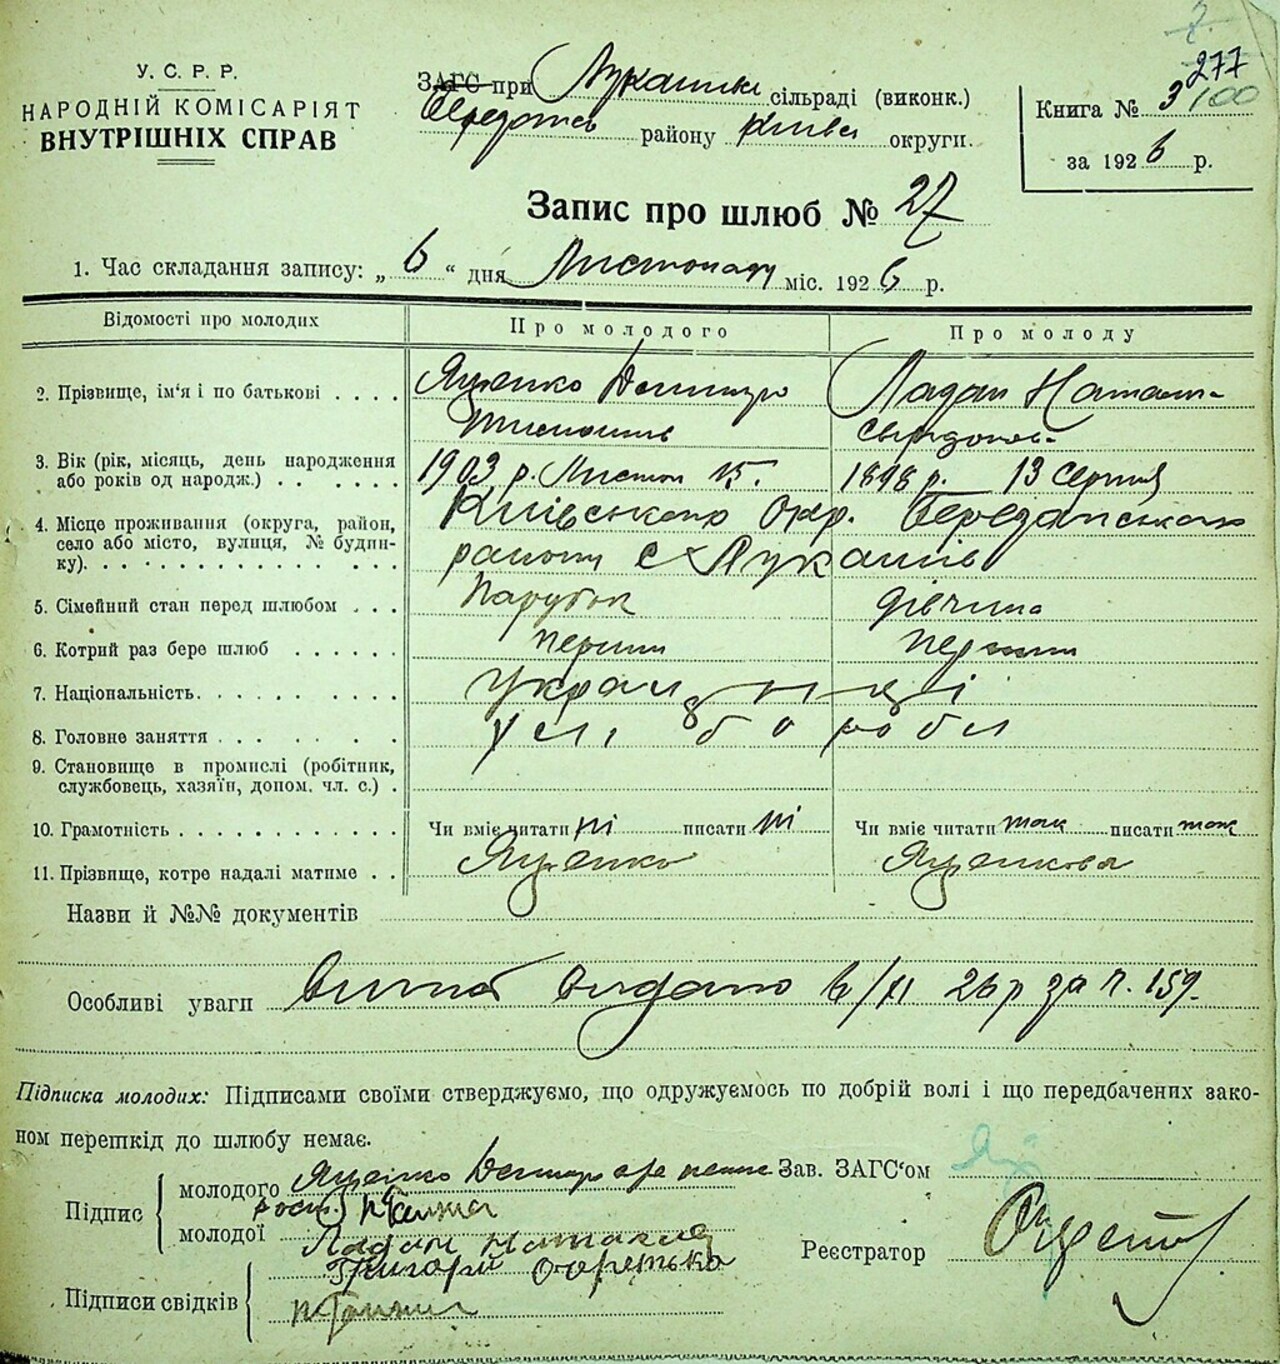 277
У. С. Р. Р.
НАРОДНІЙ КОМІСАРІЯТ
ВНУТРІШНІХ СПРАВ
ЗАГС при Лукашівс сільраді (виконк.)
району Київс округи.
Книга № 3/100
за 1926 р.
Запис про шлюб № 27
1. Час складання запису: „ 6 “ дня Листопаду міс. 1926 р.
Відомості про молодих
Про молодого
Про молоду
2. Прізвище, ім‘я і по батькові . . . .
Яценко Дмитро
Тимошів
Ладан Наталія
3. Вік (рік, місяць, день народження або років од народж.) . . . . . .
1903 р. Листоп 15.
1898 р. 13 Серпня
4. Місце проживання (округа, район, село або місто, вулиця, № будинку). . . . . . . . . . . . . .
Київського Окр. Березанського
району с Лукашів
5. Сімейний стан перед шлюбом . . .
Парубок
дівчина
6. Котрий раз бере шлюб . . . . . .
перший
перший
7. Національність. . . . . . . . .
Українці
8. Головне заняття . . . . . . . .
хлібороби
9. Становище в промислі (робітник, службовець, хазяїн, допом. чл. с.) .
10. Грамотність . . . . . . . . . . . .
Чи вміє читати ні писати ні
Чи вміє читати так писати так
11. Прізвище, котре надалі матиме . .
Яценко
Яценкова
Назви й №№ документів
Особливі уваги Видано 6/XI 26 р за ч. 159.
Підписка молодих: Підписами своїми стверджуємо, що одружуємось по добрій волі і що передбачених зако-
ном перешкід до шлюбу немає.
Підпис
молодого Яценко Дмитро
молодої Ладан Наталія
Підписи свідків
Григорій
Зав. ЗАГС‘ом
Реєстратор